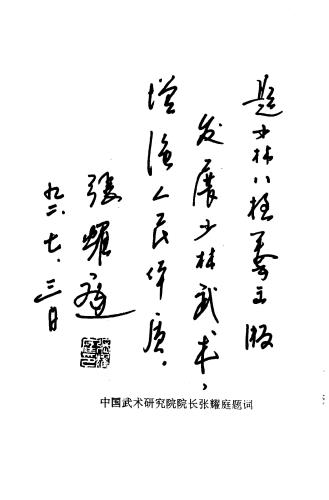 题少林八极拳出版
发展少林武术，
增强人民体质。
张耀庭
九二.七.三日
张耀庭印
中国武术研究院院长张耀庭题词